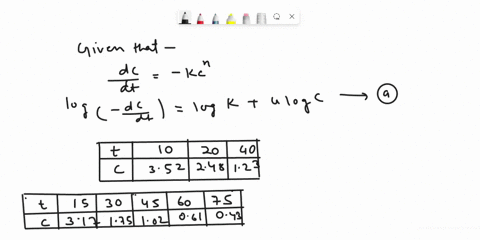 Given that —
dc/dt = -Kc^n
log(-dc/dt) = log K + n log C ⟶ (a)
t | 10 | 20 | 40
C | 3.52 | 2.48 | 1.23
t | 15 | 30 | 45 | 60 | 75
C | 3.17 | 1.75 | 1.02 | 0.61 | 0.43